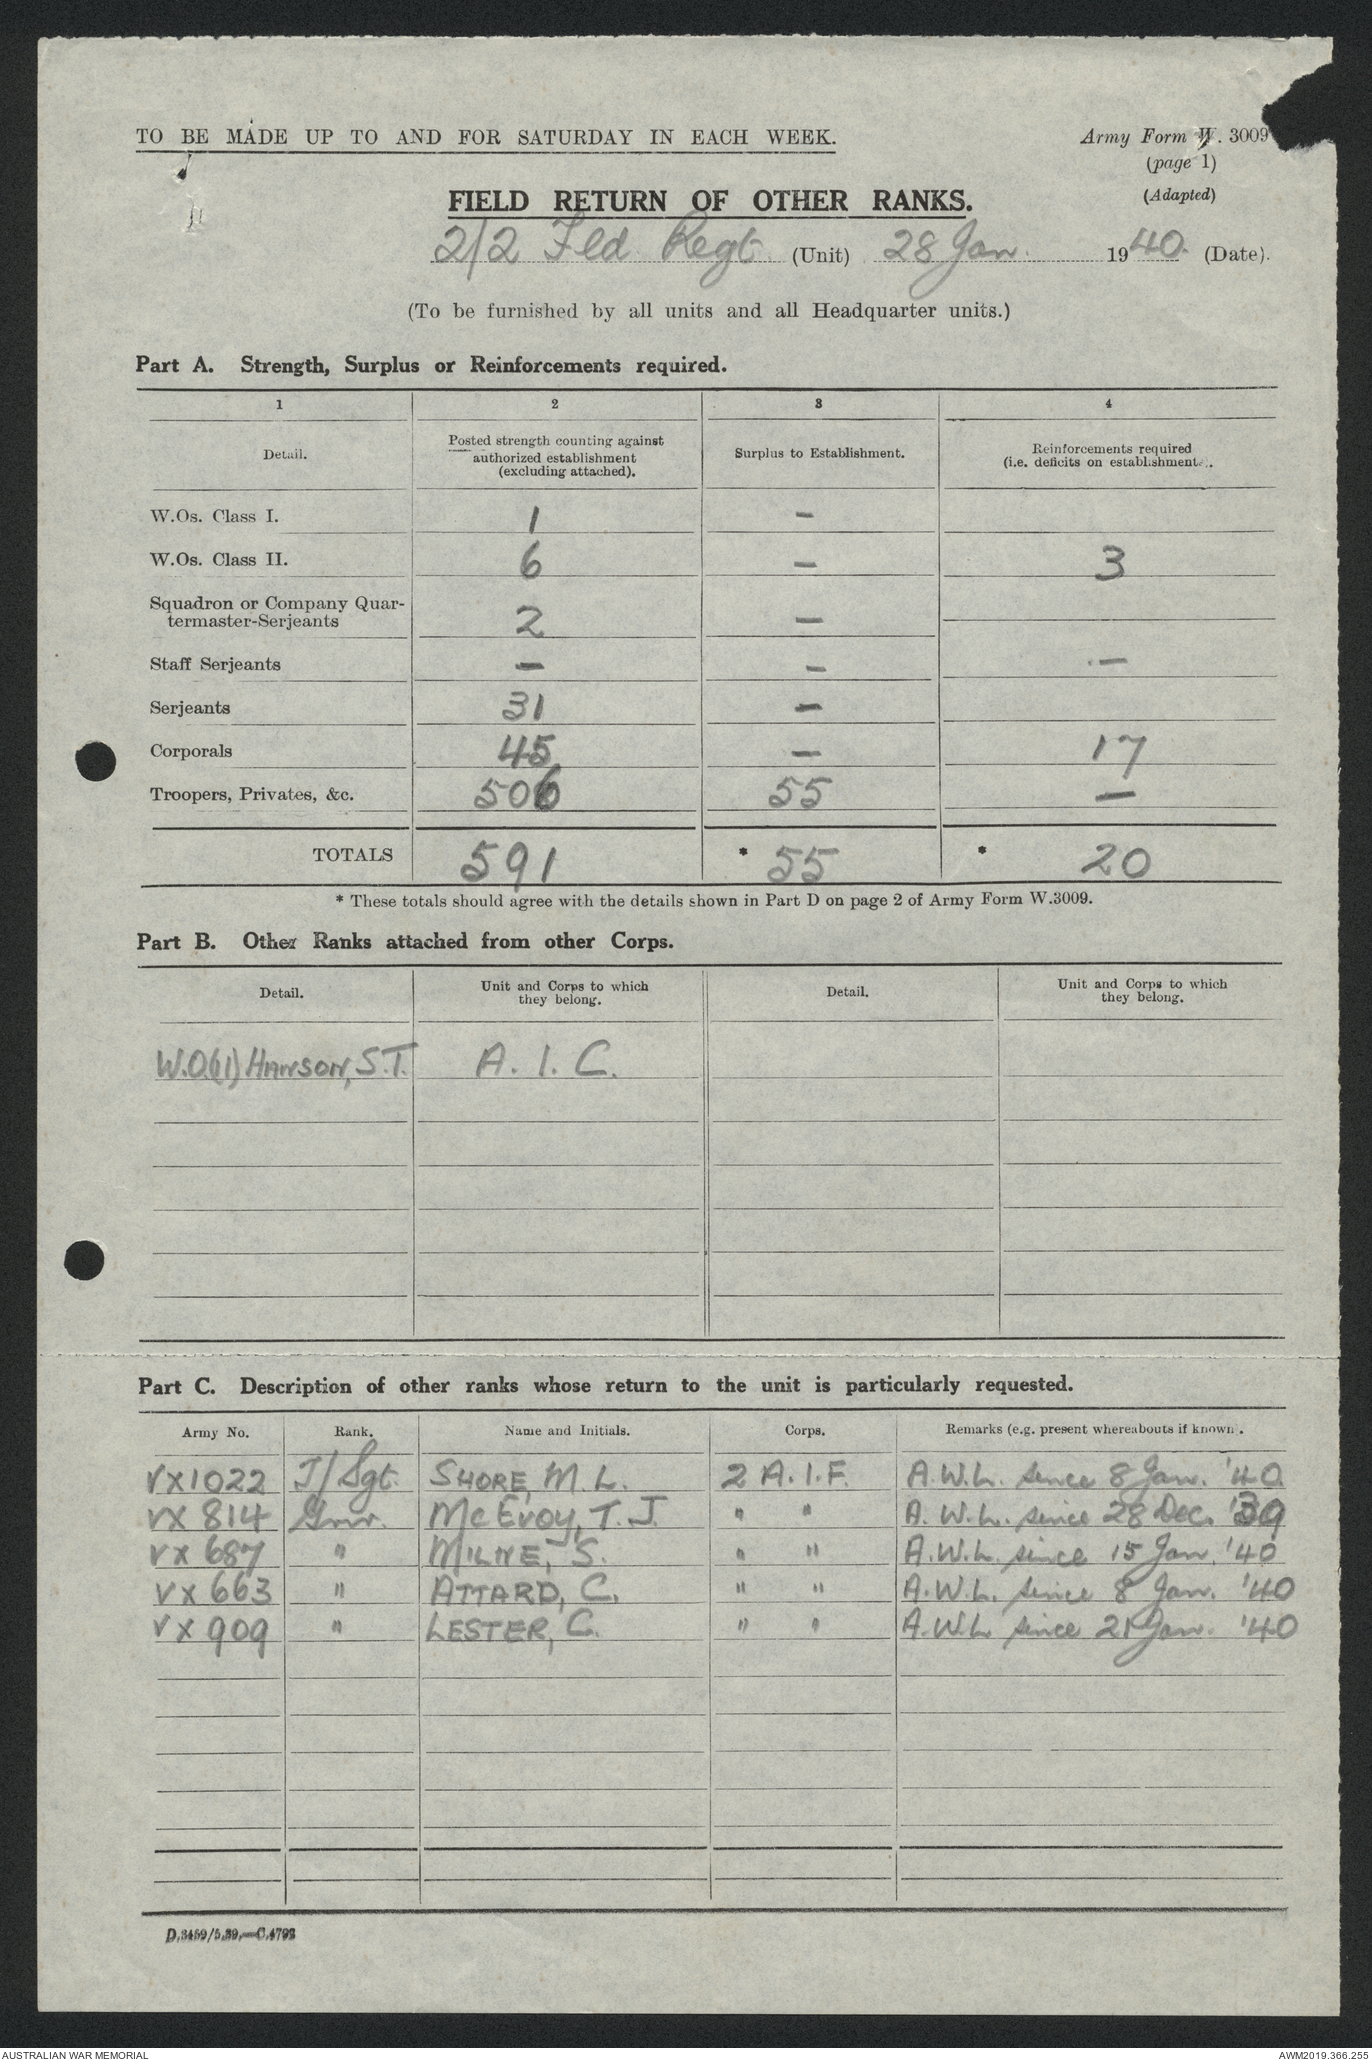 TO BE MADE UP TO AND FOR SATURDAY IN EACH WEEK.
Army Form W. 3009
(page 1)
(Adapted)
FIELD RETURN OF OTHER RANKS.
2/2 Fld Regt (Unit) 28 Jan. 1940. (Date).
(To be furnished by all units and all Headquarter units.)
Part A. Strength, Surplus or Reinforcements required.
1 2 3 4
Detail. Posted strength counting against authorized establishment (excluding attached). Surplus to Establishment. Reinforcements required (i.e. deficits on establishment).
W.Os. Class I. 1 –
W.Os. Class II. 6 – 3
Squadron or Company Quar-
termaster-Serjeants 2 –
Staff Serjeants – – –
Serjeants 31 –
Corporals 45 – 17
Troopers, Privates, &c. 506 55 –
TOTALS 591 * 55 * 20
* These totals should agree with the details shown in Part D on page 2 of Army Form W.3009.
Part B. Other Ranks attached from other Corps.
Detail. Unit and Corps to which they belong. Detail. Unit and Corps to which they belong.
W.O.(1) HANSON, S.T. A. I. C.
Part C. Description of other ranks whose return to the unit is particularly requested.
Army No. Rank. Name and Initials. Corps. Remarks (e.g. present whereabouts if known).
VX1022 J/Sgt. SHORE, M. L. 2 A. I. F. A.W.L. since 8 Jan. '40.
VX 814 Gnr. McEvoy, T. J. " " A. W. L. since 28 Dec. '39
VX 687 " MILNE, S. " " A.W.L. since 15 Jan. '40
VX 663 " ATTARD, C. " " A.W.L. since 8 Jan. '40
VX 909 " LESTER, C. " " A.W.L since 21 Jan. '40
D.3459/5.39.—C.4793
AUSTRALIAN WAR MEMORIAL
AWM2019.366.255